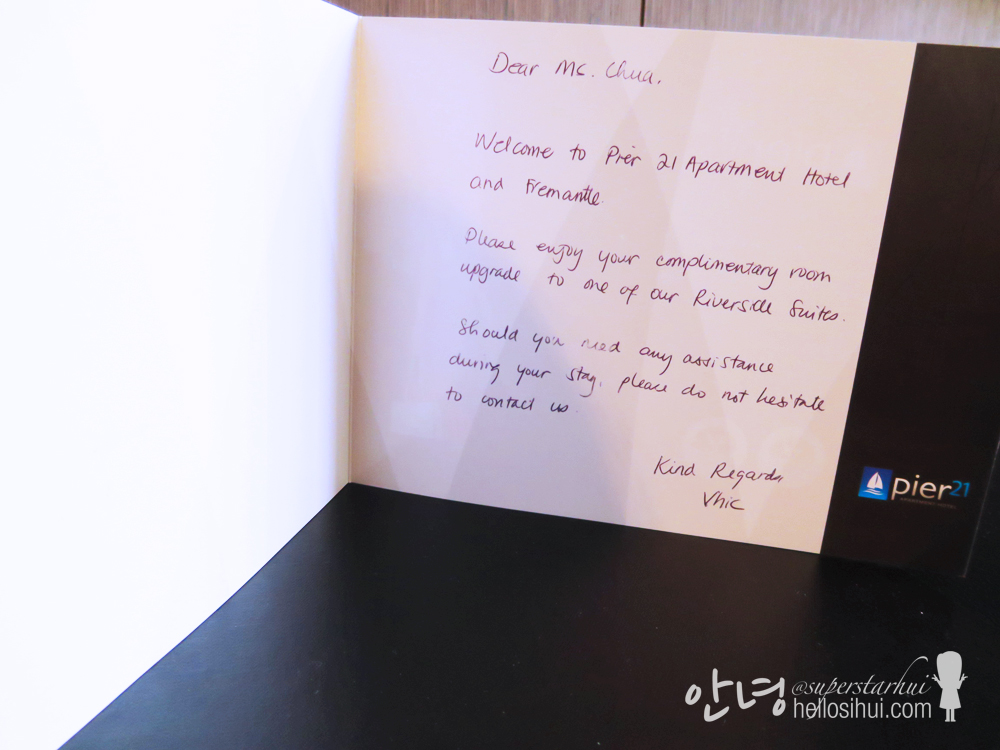 Dear Ms. Chua.
Welcome to Pier 21 Apartment Hotel
and Fremantle.
Please enjoy your complimentary room
upgrade to one of our Riverside Suites.
Should you need any assistance
during your stay, please do not hesitate
to contact us.
Kind Regards,
Vhic
pier21
안녕 @superstarhui
hellosihui.com